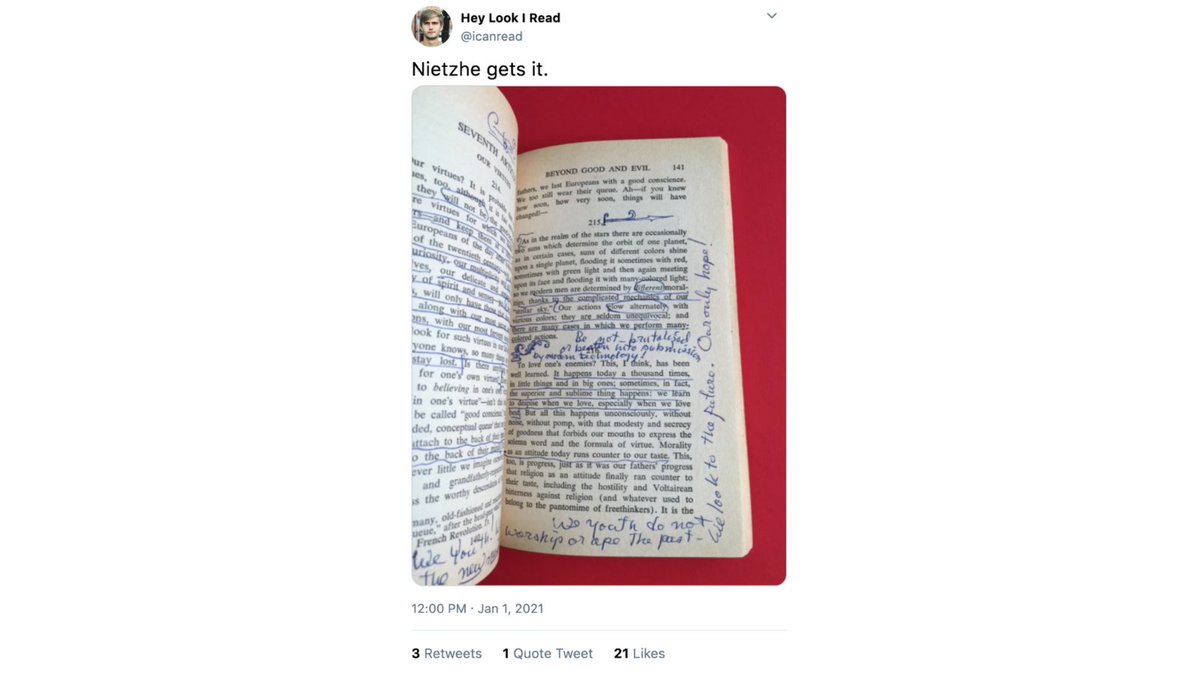 Hey Look I Read
@icanread
Nietzhe gets it.
SEVENTH
OUR
214.
ur virtues? It is probable
es, too, although it is fair
they will not be the
re virtues for which we
rs—and keep them
Europeans of the day after
of the twentieth century
uriosity, our multiplicity
ves, our delicate and
y of spirit and senses—
s, will only have those
along with our most
ons, with our most fervent
ook for such virtues in our
yone knows, so many things
stay lost. Is there any
for one's own virtues?
to believing in one's
in one's virtue"—isn't this
be called "good conscience
ded, conceptual queue that
attach to the back of their
o the back of their
ever little we imagine
and grandfatherly
ss the worthy descendants
many, old-fashioned and
ueue," after the head
French Revolution.
140
We You
the new
BEYOND GOOD AND EVIL 141
fathers, we last Europeans with a good conscience.
We too still wear their queue. Ah—if you knew
how soon, how very soon, things will have
changed!—
215.
As in the realm of the stars there are occasionally
two suns which determine the orbit of one planet,
as in certain cases, suns of different colors shine
upon a single planet, flooding it sometimes with red,
sometimes with green light and then again meeting
upon its face and flooding it with many-colored light;
so we modern men are determined by different moral-
ities, thanks to the complicated mechanics of our
"stellar sky." Our actions glow alternately with
various colors; they are seldom unequivocal; and
there are many cases in which we perform many-
colored actions.
Be not brutalized
or beaten into submission
by modern technology!
To love one's enemies? This, I think, has been
well learned. It happens today a thousand times,
in little things and in big ones; sometimes, in fact,
the superior and sublime thing happens: we learn
to despise when we love, especially when we love
best. But all this happens unconsciously, without
noise, without pomp, with that modesty and secrecy
of goodness that forbids our mouths to express the
solemn word and the formula of virtue. Morality
as an attitude today runs counter to our taste. This,
too, is progress, just as it was our fathers' progress
that religion as an attitude finally ran counter to
their taste, including the hostility and Voltairean
bitterness against religion (and whatever used to
belong to the pantomime of freethinkers). It is the
We youth do not
worship or ape the past-
We look to the future. Our only hope!
12:00 PM · Jan 1, 2021
3 Retweets 1 Quote Tweet 21 Likes